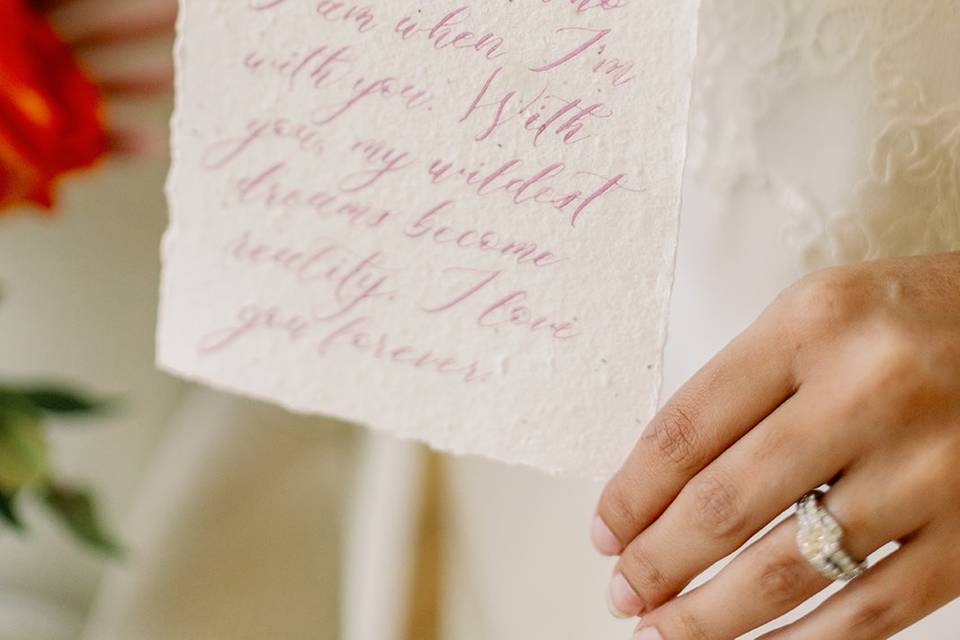 am when I'm
with you. With
you, my wildest
dreams become
reality. I love
you forever.